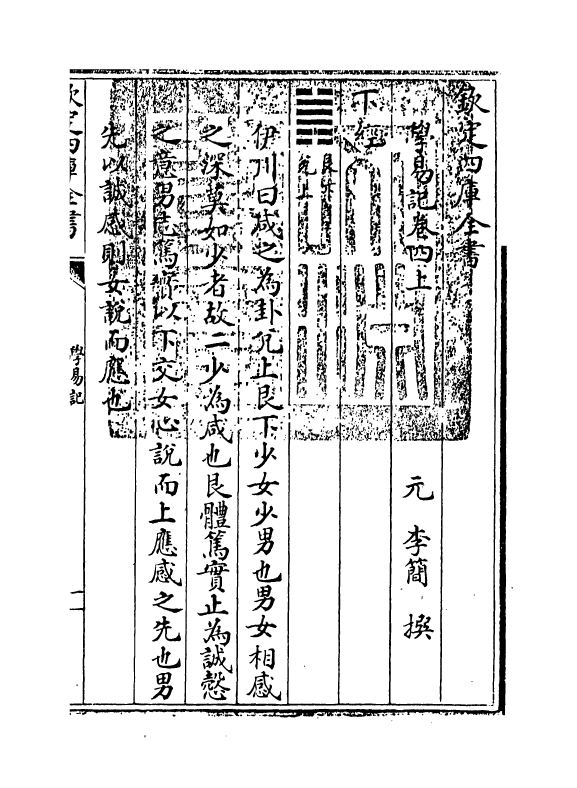 欽定四庫全書
學易記卷四上
元 李簡 撰
下經
艮下
兌上
伊川曰咸之為卦兌上艮下少女少男也男女相感
之深莫如少者故二少為咸也艮體篤實止為誠慤
之意男志篤實以下交女心說而上應感之先也男
先以誠感則女說而應也
欽定四庫全書
學易記
一